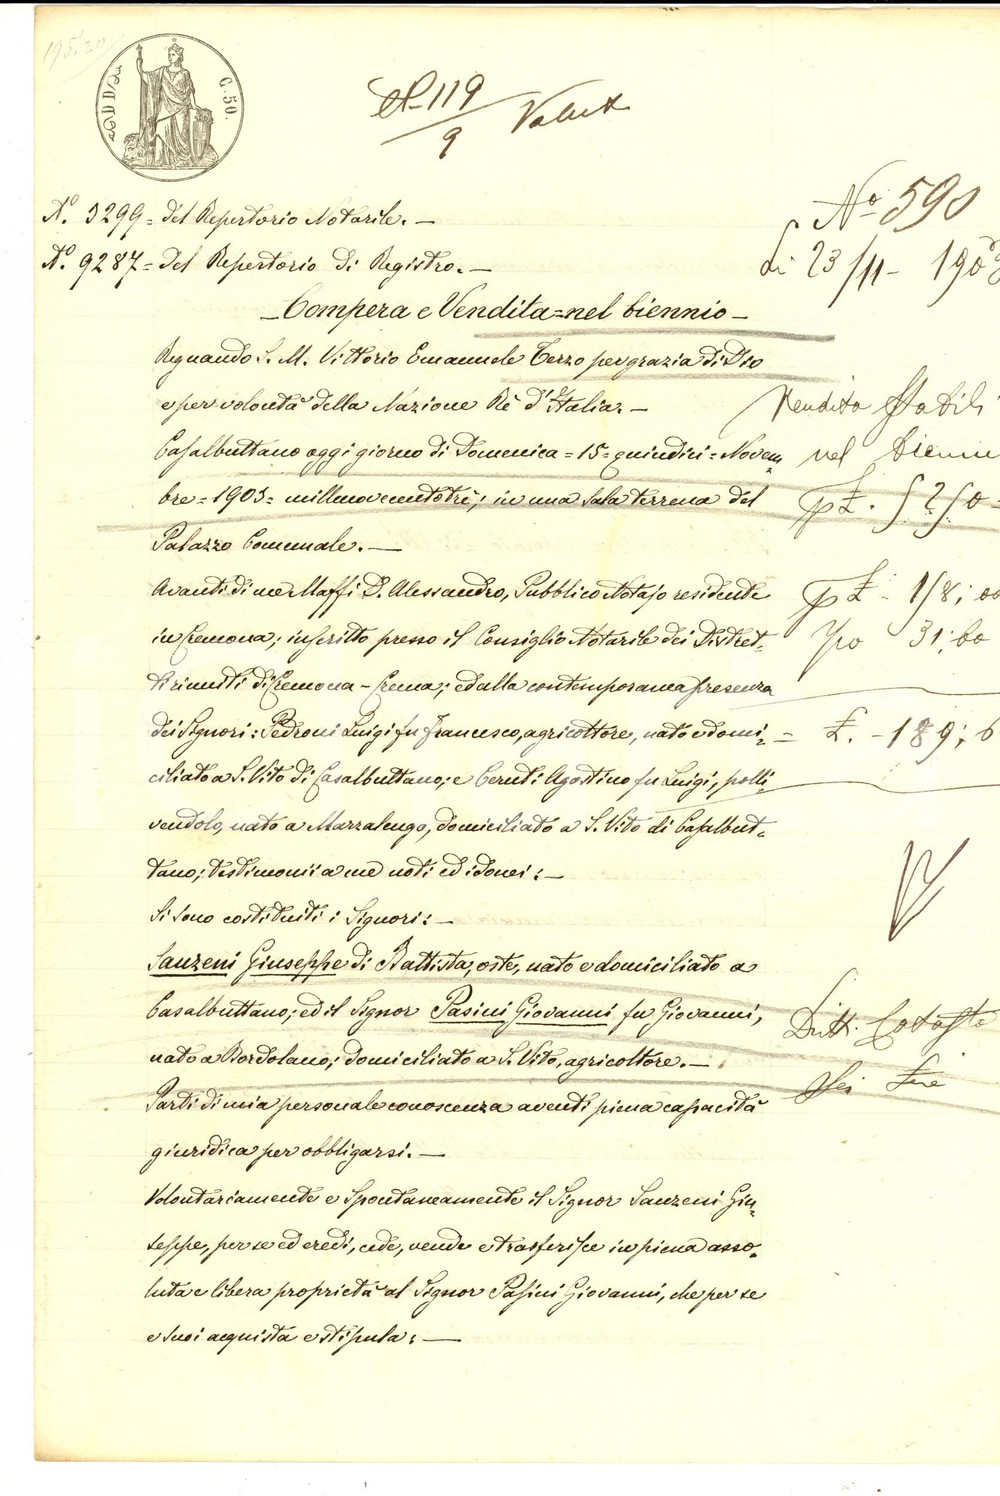 195.20
C. 50.
119
9
N.° 3299 = del Repertorio Notarile. —
N.° 9287 = del Repertorio di Registro. —
N.° 590
di 23/11 - 1903
— Compera e Vendita = nel biennio —
Regnando S. M. Vittorio Emanuele Terzo per grazia di Dio
e per volontà della Nazione Rè d'Italia. —
Casalbuttano oggi giorno di Domenica = 15 = quindici = Novem
bre = 1903 = millenovecentotrè; in una Sala terrena del
Palazzo Comunale. —
Avanti di me Maffi D. Alessandro, Pubblico Notajo residente
in Cremona; inscritto presso il Consiglio Notarile dei Distret=
ti riuniti di Cremona - Crema; ed alla contemporanea presenza
dei Signori: Pedroni Luigi fu Francesco, agricoltore, nato e domi=
ciliato a S. Vito di Casalbuttano; e Ceruti Agostino fu Luigi, polli=
vendolo, nato a Marzalengo, domiciliato a S. Vito di Casalbut=
tano; testimoni a me noti ed idonei: —
Si sono costituiti i Signori: —
Sanzeni Giuseppe di Battista, oste, nato e domiciliato a
Casalbuttano; ed il Signor Pasini Giovanni fu Giovanni,
nato a Bordolano; domiciliato a S. Vito, agricoltore. —
Parti di mia personale conoscenza aventi piena capacità
giuridica per obbligarsi. —
Volontariamente e Spontaneamente il Signor Sanzeni Giu=
seppe, per se ed eredi, cede, vende e trasferisce in piena asso=
luta e libera proprietà al Signor Pasini Giovanni, che per se
e suoi acquista e stipula: —
Vendita Stabili
nel biennio
£. 5250 =
£ - 158; 00
31; 60
= £. - 189; 6
Diritti Catasto